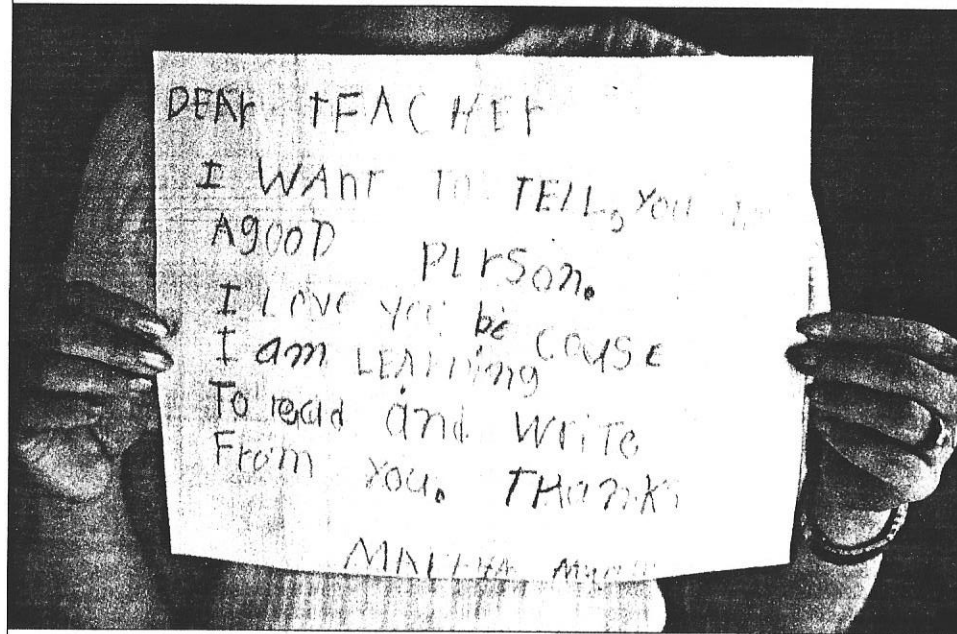 DEAr tEACHEr
I WAnt To TELL, YOU
AgooD PErSon.
I LovE you be couse
I am LEArning
To read and WriTe
From you. THanks